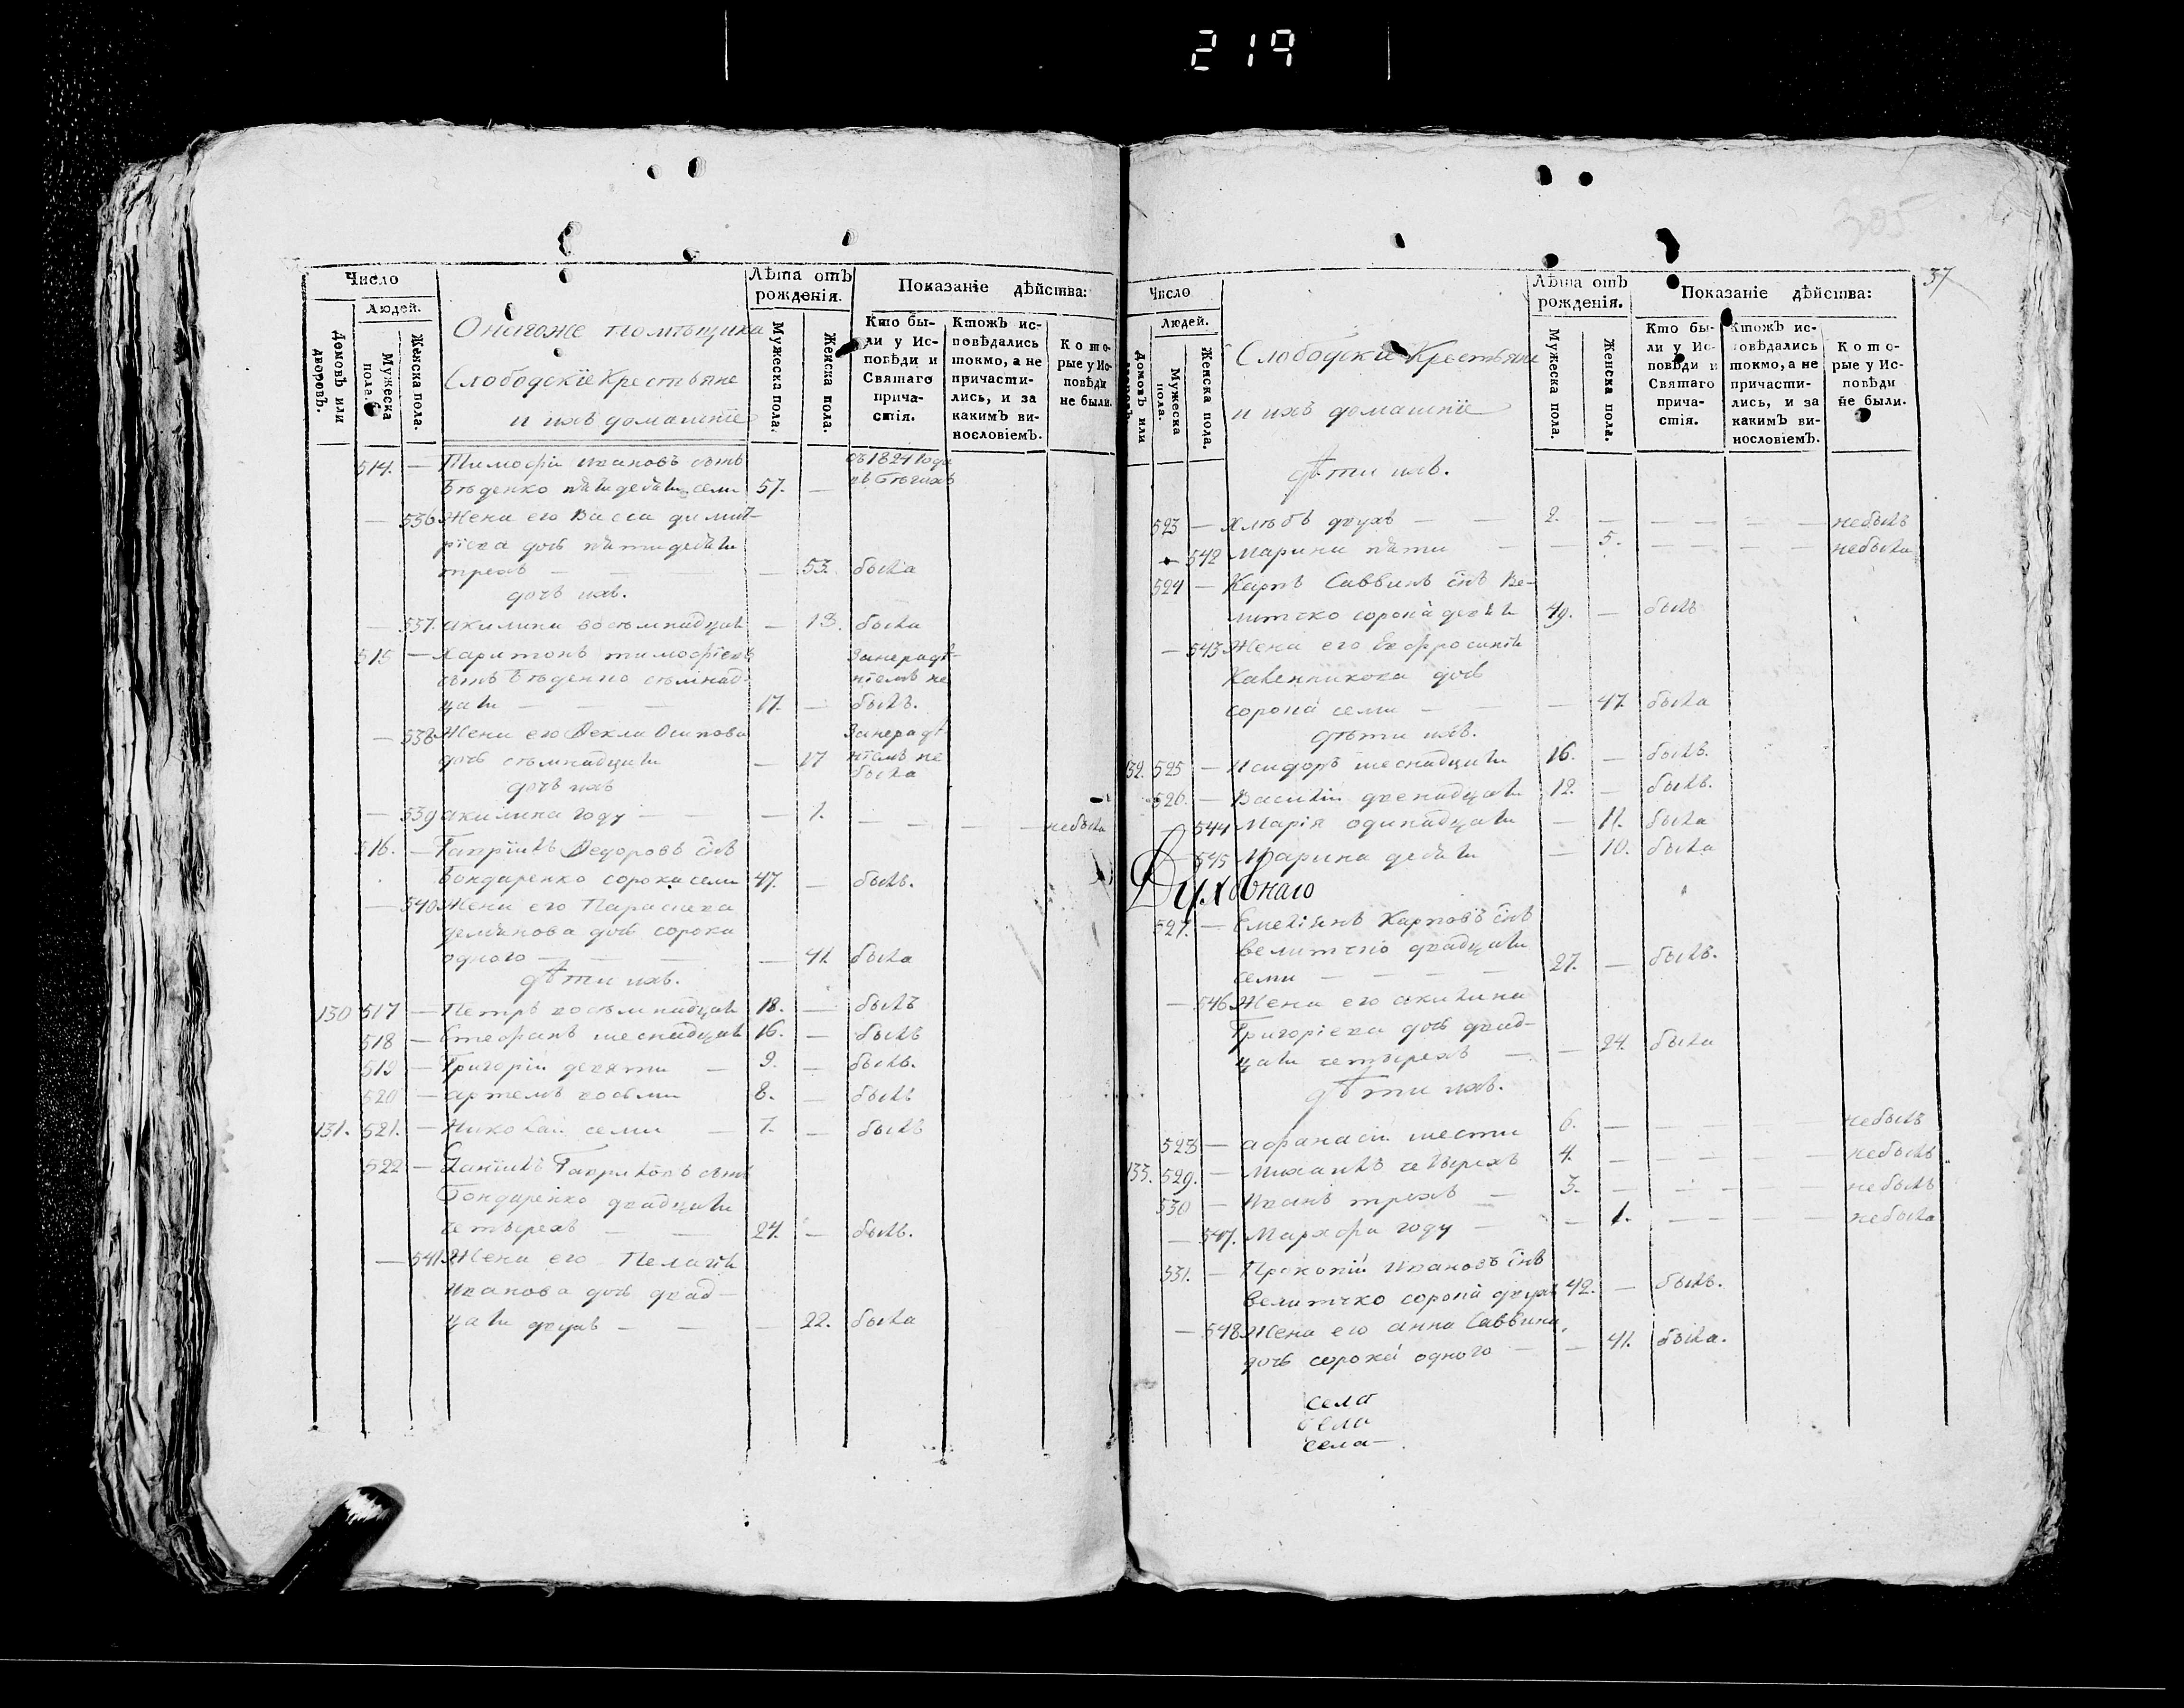 219
305
37
Число
Людей.
Домовъ или дворовъ.
Мужеска пола.
Женска пола.
Онагоже помѣщика
Слободскіе Крестьяне
и ихъ домашніе
Лѣта отъ рожденія.
Мужеска пола.
Женска пола.
Показаніе дѣйства:
Кто бы-
ли у Ис-
повѣди и
Святаго
прича-
стія.
Ктожъ ис-
повѣдались
токмо, а не
причасти-
лись, и за
какимъ ви-
нословіемъ.
Кото-
рые у Ис-
повѣди
не были.
514. — Тимофій Ивановъ сынъ съ 1821 года
Бѣденко пятидесяти семи 57. — въ бѣгахъ
— 536 Жена его Васса Димит-
ріева дочь пятидесяти
трехъ — — — 53. была
дочь ихъ.
— 537. Акилина восемнадцати — 18. была
515 — Харитонъ Тимофіевъ Занерадѣ-
сынъ Бѣденко семнад- ніемъ не
цати — — 17. — былъ.
— 538 Жена его Ѳекла Осипова Занерадѣ-
дочь семнадцати — 17 ніемъ не
была
дочь ихъ
— 539 Акилина году — — 1. — — — небыла
516. — Гавріилъ Ѳедоровъ снъ
Бондаренко сорока семи 47. — былъ.
— 540 Жена его Параскева
Демянова дочь сорока
одного — — — 41. была
дѣти ихъ.
130 517 — Петръ восемнадцати 18. — былъ
518 — Стефанъ шеснадцати 16. — былъ
519 — Григорій девяти — 9. — былъ.
520 — Артемъ восьми 8. — былъ
131. 521. — Николай семи — 7. — былъ
522 — Даніилъ Гавриловъ сынъ
Бондаренко двадцати
четырехъ — — 24. — былъ.
— 541. Жена его Пелагія
Иванова дочь двад-
цати двухъ — — — 22. была
Число
Людей.
Домовъ или дворовъ.
Мужеска пола.
Женска пола.
Слободскіе Крестьяне
и ихъ домашніе
Лѣта отъ рожденія.
Мужеска пола.
Женска пола.
Показаніе дѣйства:
Кто бы-
ли у Ис-
повѣди и
Святаго
прича-
стія.
Ктожъ ис-
повѣдались
токмо, а не
причасти-
лись, и за
какимъ ви-
нословіемъ.
Кото-
рые у Ис-
повѣди
не были.
дѣти ихъ.
523 — двухъ — — 2. — — — — — небылъ
— 542 Марина пяти — — 5. — — — — небыла
524 — Карпъ Саввинъ снъ Ве-
литчко сорока девяти 49. — былъ
— 543 Жена его Евфросинія
дочь
сорока семи — — — 47. была
дѣти ихъ.
132. 525 — Исидоръ шеснадцати 16. — былъ.
526. — Василій двенадцати 12. — былъ.
— 544 Марія одинадцати — 11. была
— 545 Марина десяти — 10. была
Духовнаго
527. — Емеліянъ Карповъ снъ
Велитчко двадцати
семи — — — — 27. — былъ.
— 546 Жена его Акилина
Григоріева дочь двад-
цати четырехъ — — 24. была
дѣти ихъ.
528 — Афанасій шести 6. — — — — небылъ
133. 529. — Михаилъ четырехъ 4. — — — — небылъ
530 — Иванъ трехъ — 3. — — — — небылъ
— 547. Марфа году — — 1. — — — — небыла
531. — Прокопій Ивановъ снъ
Велитчко сорока двухъ 42. — былъ.
— 548 Жена его Анна Саввина
дочь сорока одного — — 41. была.
села
села
села —